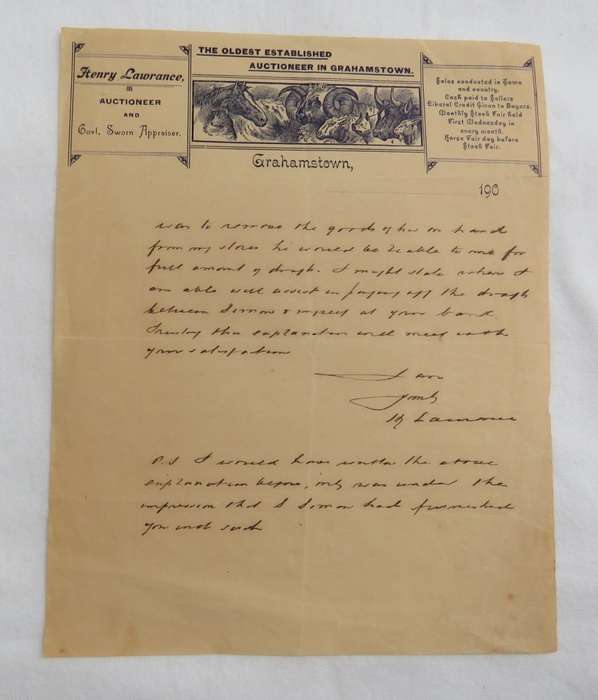 Henry Lawrance,
AUCTIONEER
AND
Govt. Sworn Appraiser.
THE OLDEST ESTABLISHED
AUCTIONEER IN GRAHAMSTOWN.
Sales conducted in Town
and country.
Cash paid to Sellers
Liberal Credit Given to Buyers.
Monthly Stock Fair held
First Wednesday in
every month.
Horse Fair day before
Stock Fair.
Grahamstown,
190
was to remove the goods of his on hand
from my stores he would be liable to me for
full amount of draft. I might state when I
am able will assist in paying off the draft
between Simon & myself at your bank
Trusting this explanation will meet with
your satisfaction
I am
Yours
Hy Lawrance
P.S I would have written the above
explanation before, only was under the
impression that S Simon had furnished
you with such